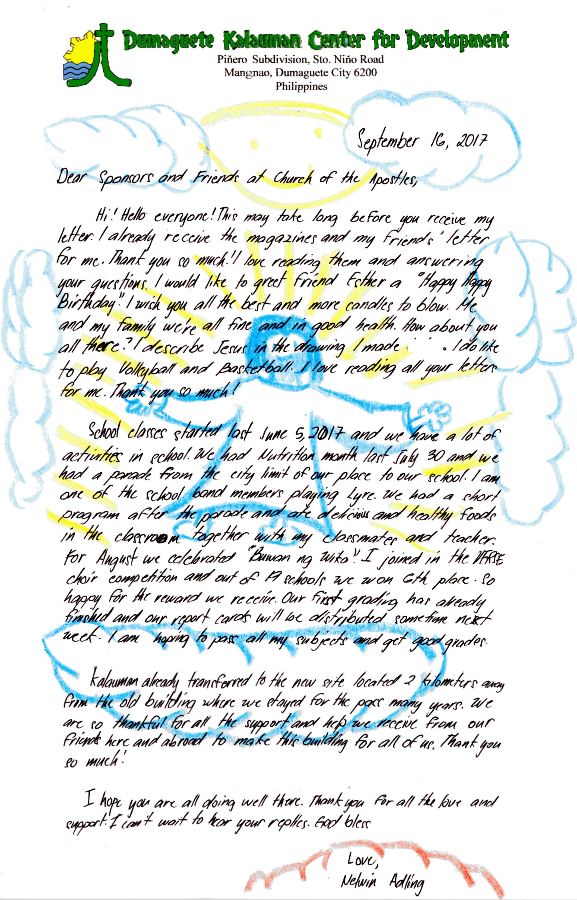 Dumaguete Kalauman Center for Development
Piñero Subdivision, Sto. Niño Road
Mangnao, Dumaguete City 6200
Philippines
September 16, 2017
Dear Sponsors and Friends at Church of the Apostles,
Hi! Hello everyone! This may take long before you receive my
letter. I already receive the magazines and my friends' letter
for me. Thank you so much! I love reading them and answering
your questions. I would like to greet friend Esther a "Happy Happy
Birthday". I wish you all the best and more candles to blow. Me
and my family we're all fine and in good health. How about you
all there? I describe Jesus in the drawing I made . I do like
to play Volleyball and Basketball. I love reading all your letters
for me. Thank you so much!
School classes started last June 5, 2017 and we have a lot of
activities in school. We had Nutrition month last July 30 and we
had a parade from the city limit of our place to our school. I am
one of the school band members playing lyre. We had a short
program after the parade and ate delicious and healthy foods
in the classroom together with my classmates and teacher.
For August we celebrated "Buwan ng Wika". I joined in the VERSE
choir competition and out of 19 schools we won 6th place. So
happy for the reward we receive. Our first grading has already
finished and our report cards will be distributed sometime next
week. I am hoping to pass all my subjects and get good grades.
Kalauman already transferred to the new site located 2 kilometers away
from the old building where we stayed for the pass many years. We
are so thankful for all the support and help we receive from our
friends here and abroad to make this building for all of us. Thank you
so much!
I hope you are all doing well there. Thank you for all the love and
support. I can't wait to hear your replies. God bless
Love,
Nelwin Adling